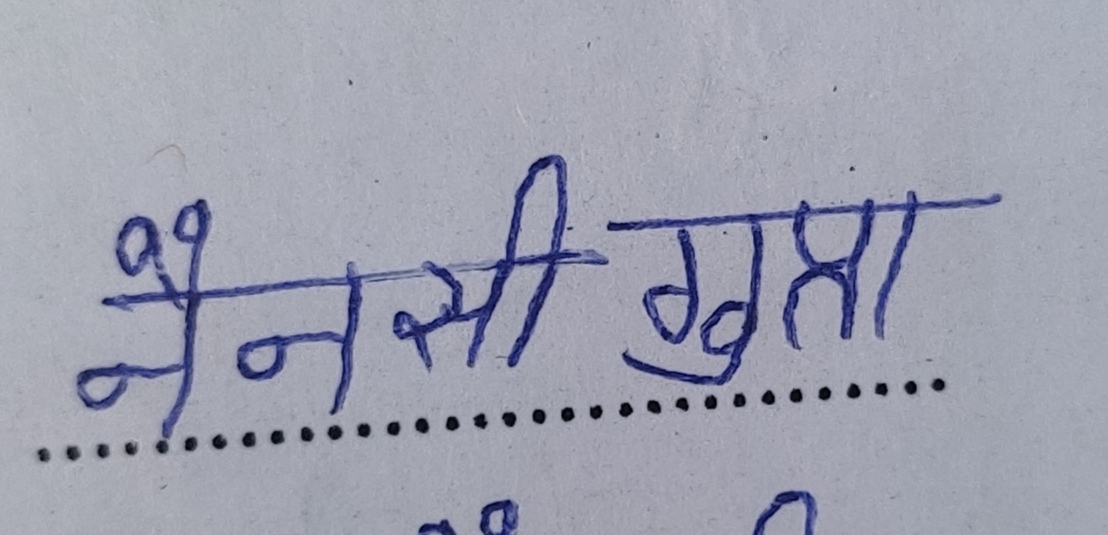 नैनसी गुप्ता